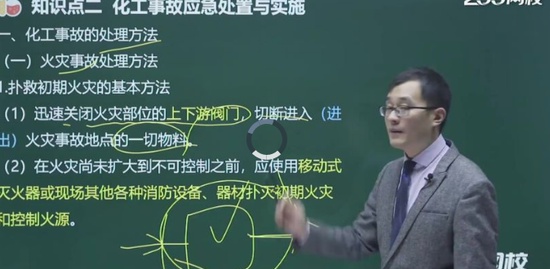 265网校
知识点二 化工事故应急处置与实施
一、化工事故的处理方法
（一）火灾事故处理方法
1.扑救初期火灾的基本方法
（1）迅速关闭火灾部位的上下游阀门，切断进入（进
出）火灾事故地点的一切物料。
（2）在火灾尚未扩大到不可控制之前，应使用移动式
灭火器或现场其他各种消防设备、器材扑灭初期火灾
和控制火源。
网校